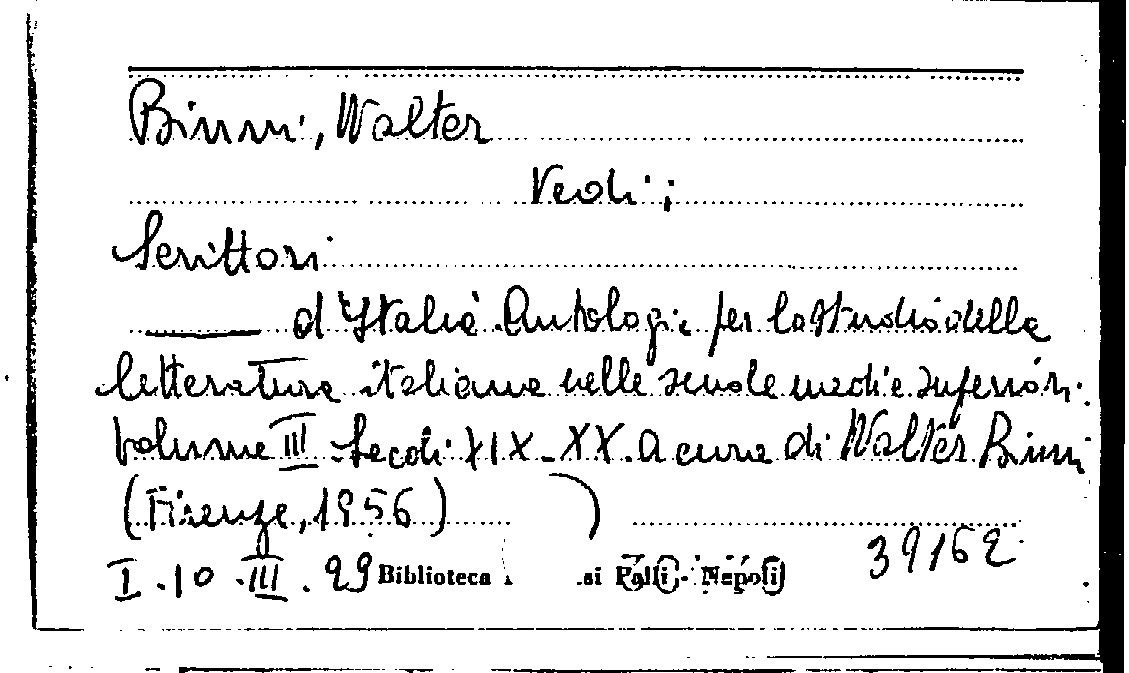 Binni, Walter
Vedi:
Scrittori
d'Italia. Antologia per lo studio della
letteratura italiana nelle scuole medie superiori.
Volume III. Secoli XIX-XX. A cura di Walter Binni
(Firenze, 1956)
39162
I.10.III.29 Biblioteca si Palli - Napoli